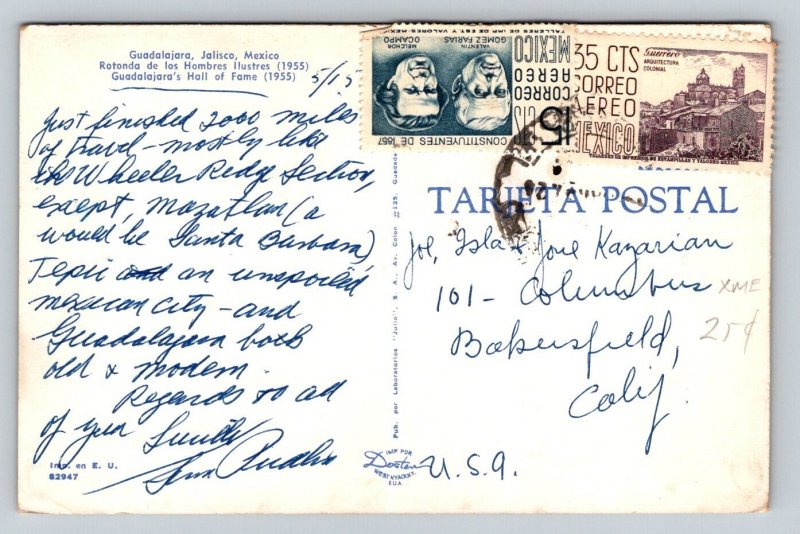 Guadalajara, Jalisco, Mexico
Rotonda de los Hombres Ilustres (1955)
Guadalajara's Hall of Fame (1955)
5/15
Just finished 2000 miles
of travel - mostly like
the Wheeler Ridge Section,
except, Mazatlan (a
would be Santa Barbara)
Tepic an unspoiled
mexican city - and
Guadalajara both
old & modern.
Regards to all
of your
Imp. en E. U.
82947
Pub. por Laboratorios "Julio", S. A., Av. Colon #125, Guadala
MELCHOR OCAMPO
VALENTIN GOMEZ FARIAS
TALLERES DE IMP. DE EST. Y VALORES-MEXICO
CONSTITUYENTES DE 1857
CORREO
AEREO
MEXICO
15
35 CTS
CORREO
AEREO
MEXICO
Guerrero
ARQUITECTURA
COLONIAL
TALLERES DE IMPRESION DE ESTAMPILLAS Y VALORES-MEXICO
TARJETA POSTAL
Joe, Isla & José Kazarian
101 - Columbus
Bakersfield,
Calif.
U.S.A.
XME
25¢
IMP POR
Dexter
WEST NYACK, N.Y.
E.U.A.